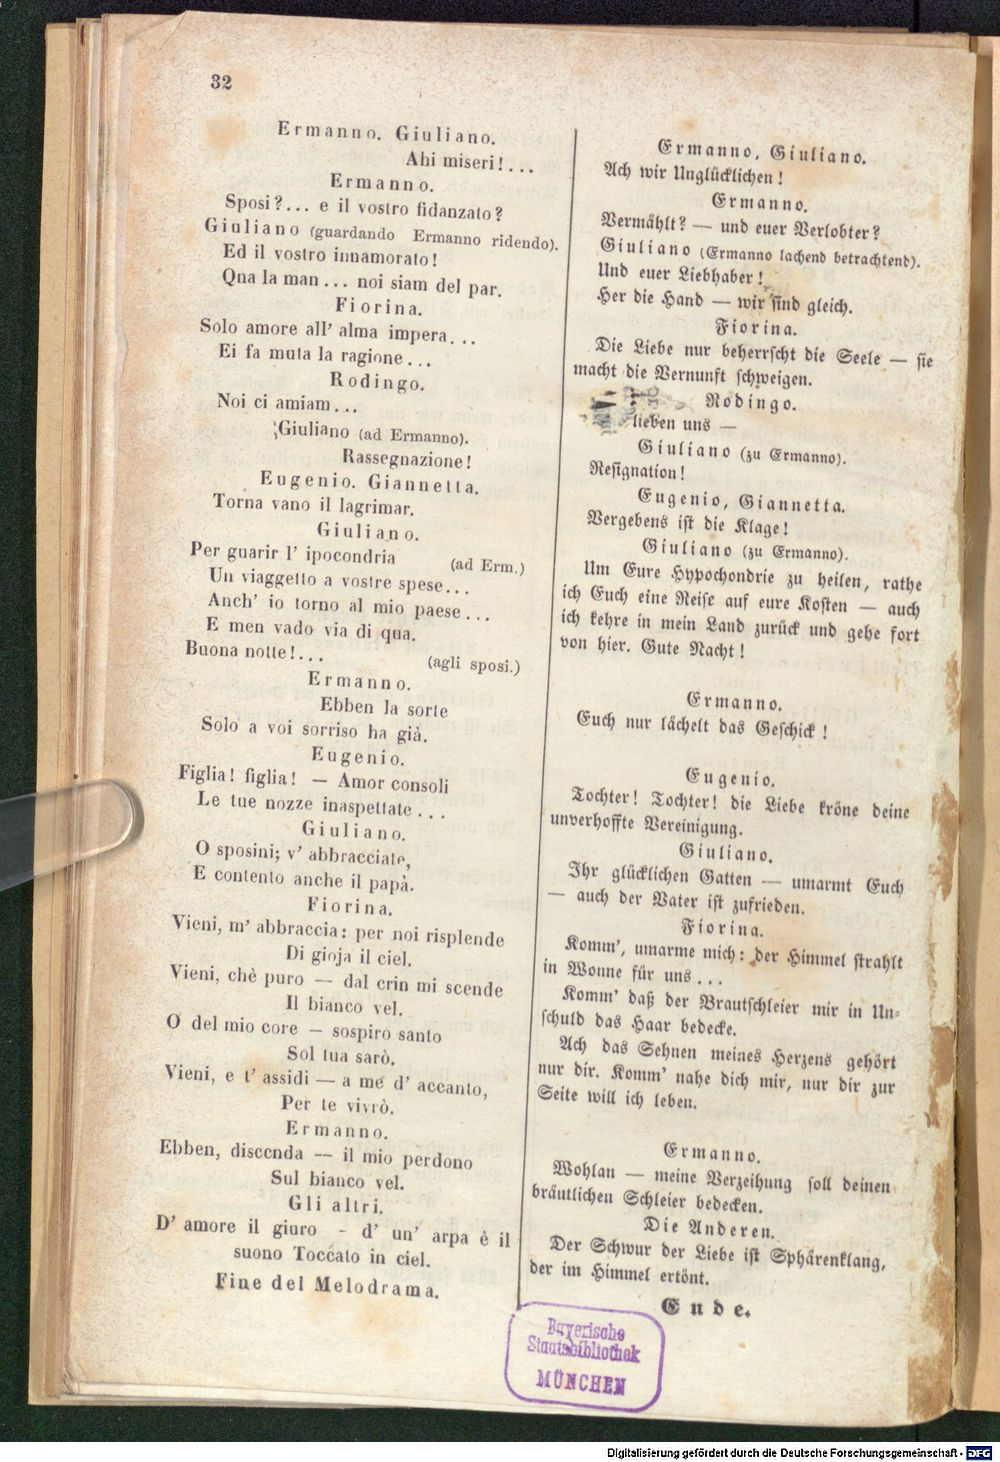 32
Ermanno. Giuliano.
Ahi miseri!...
Ermanno.
Sposi?... e il vostro fidanzato?
Giuliano (guardando Ermanno ridendo).
Ed il vostro innamorato!
Qua la man... noi siam del par.
Fiorina.
Solo amore all' alma impera...
Ei fa muta la ragione...
Rodingo.
Noi ci amiam...
Giuliano (ad Ermanno).
Rassegnazione!
Eugenio. Giannetta.
Torna vano il lagrimar.
Giuliano.
Per guarir l' ipocondria (ad Erm.)
Un viaggetto a vostre spese...
Anch' io torno al mio paese...
E men vado via di qua.
Buona notte!... (agli sposi.)
Ermanno.
Ebben la sorte
Solo a voi sorriso ha già.
Eugenio.
Figlia! figlia! — Amor consoli
Le tue nozze inaspettate...
Giuliano.
O sposini; v' abbracciate,
E contento anche il papà.
Fiorina.
Vieni, m' abbraccia: per noi risplende
Di gioja il ciel.
Vieni, chè puro — dal crin mi scende
Il bianco vel.
O del mio core — sospiro santo
Sol tua sarò.
Vieni, e t' assidi — a me d' accanto,
Per te vivrò.
Ermanno.
Ebben, discenda — il mio perdono
Sul bianco vel.
Gli altri.
D' amore il giuro - d' un' arpa è il
suono Toccato in ciel.
Fine del Melodrama.
Ermanno, Giuliano.
Ach wir Unglücklichen!
Ermanno.
Vermählt? — und euer Verlobter?
Giuliano (Ermanno lachend betrachtend).
Und euer Liebhaber!
Her die Hand — wir sind gleich.
Fiorina.
Die Liebe nur beherrscht die Seele — sie
macht die Vernunft schweigen.
Rodingo.
lieben uns —
Giuliano (zu Ermanno).
Resignation!
Eugenio, Giannetta.
Vergebens ist die Klage!
Giuliano (zu Ermanno).
Um Eure Hypochondrie zu heilen, rathe
ich Euch eine Reise auf eure Kosten — auch
ich kehre in mein Land zurück und gehe fort
von hier. Gute Nacht!
Ermanno.
Euch nur lächelt das Geschick!
Eugenio.
Tochter! Tochter! die Liebe kröne deine
unverhoffte Vereinigung.
Giuliano.
Ihr glücklichen Gatten — umarmt Euch
— auch der Vater ist zufrieden.
Fiorina.
Komm', umarme mich: der Himmel strahlt
in Wonne für uns...
Komm' daß der Brautschleier mir in Un-
schuld das Haar bedecke.
Ach das Sehnen meines Herzens gehört
nur dir. Komm' nahe dich mir, nur dir zur
Seite will ich leben.
Ermanno.
Wohlan — meine Verzeihung soll deinen
bräutlichen Schleier bedecken.
Die Anderen.
Der Schwur der Liebe ist Sphärenklang,
der im Himmel ertönt.
Ende.
Bayerische
Staatsbibliothek
MÜNCHEN
Digitalisierung gefördert durch die Deutsche Forschungsgemeinschaft - DFG